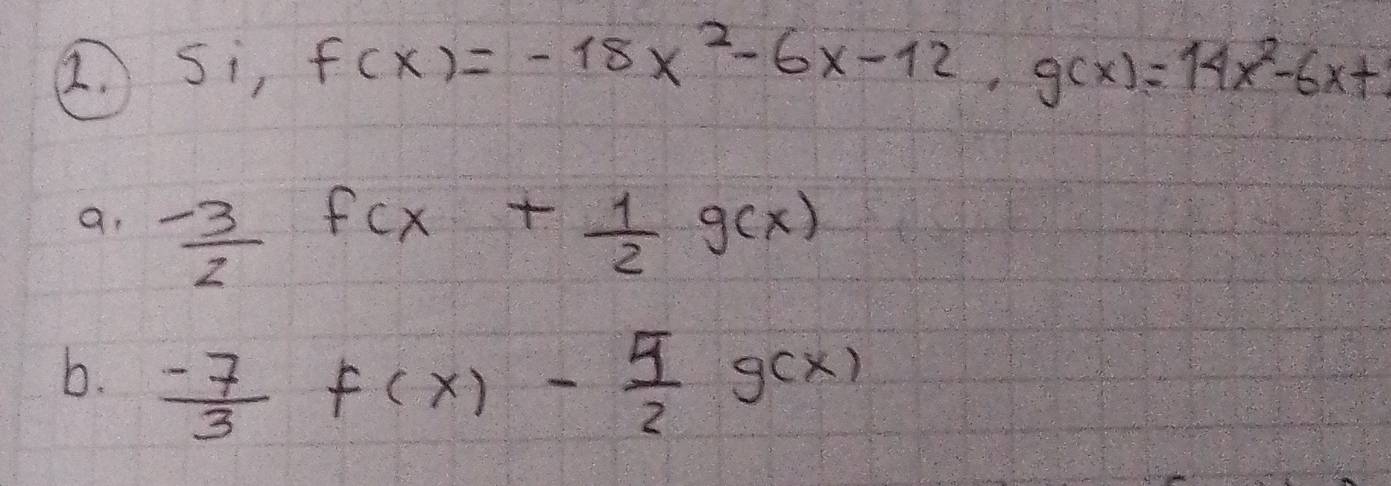 2. Si, f(x)= -18x²-6x-12, g(x)=14x²-6x+
a. -3/2 f(x + 1/2 g(x)
b. -7/3 f(x) - 5/2 g(x)